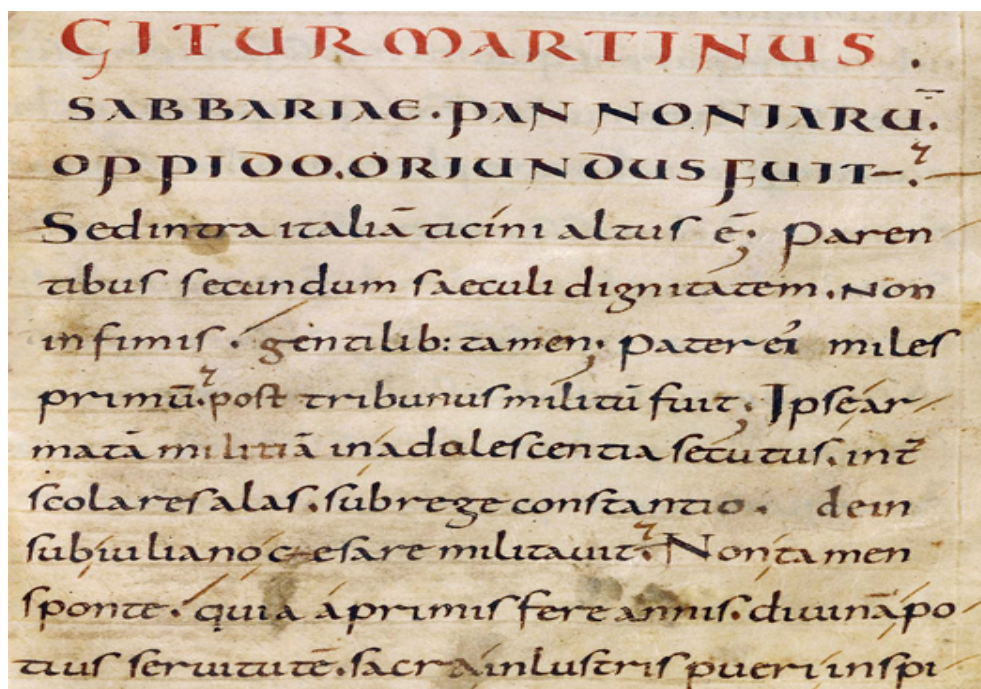 GITUR MARTINUS.
SABBARIAE. PANNONIARŪ.
OPPIDO. ORIUNDUS FUIT.
Sed intra italiā ticini altus ē; Paren
tibus secundum saeculi dignitatem. Non
infimis. gentilib: tamen; Pater ei miles
primū. post tribunus militū fuit; Ipse ar
matā militiā in adolescentia secutus. int̄
scolares alas. sub rege constantio. dein
sub iuliano cęsare militauit. Non tamen
sponte. quia a primis fere annis. diuinā po
tius seruitutē. sacra inlustris pueri inspi